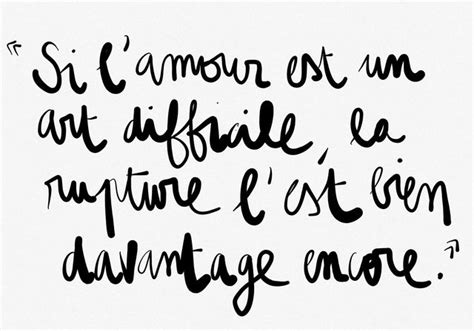 « Si l'amour est un
art difficile, la
rupture l'est bien
davantage encore. »